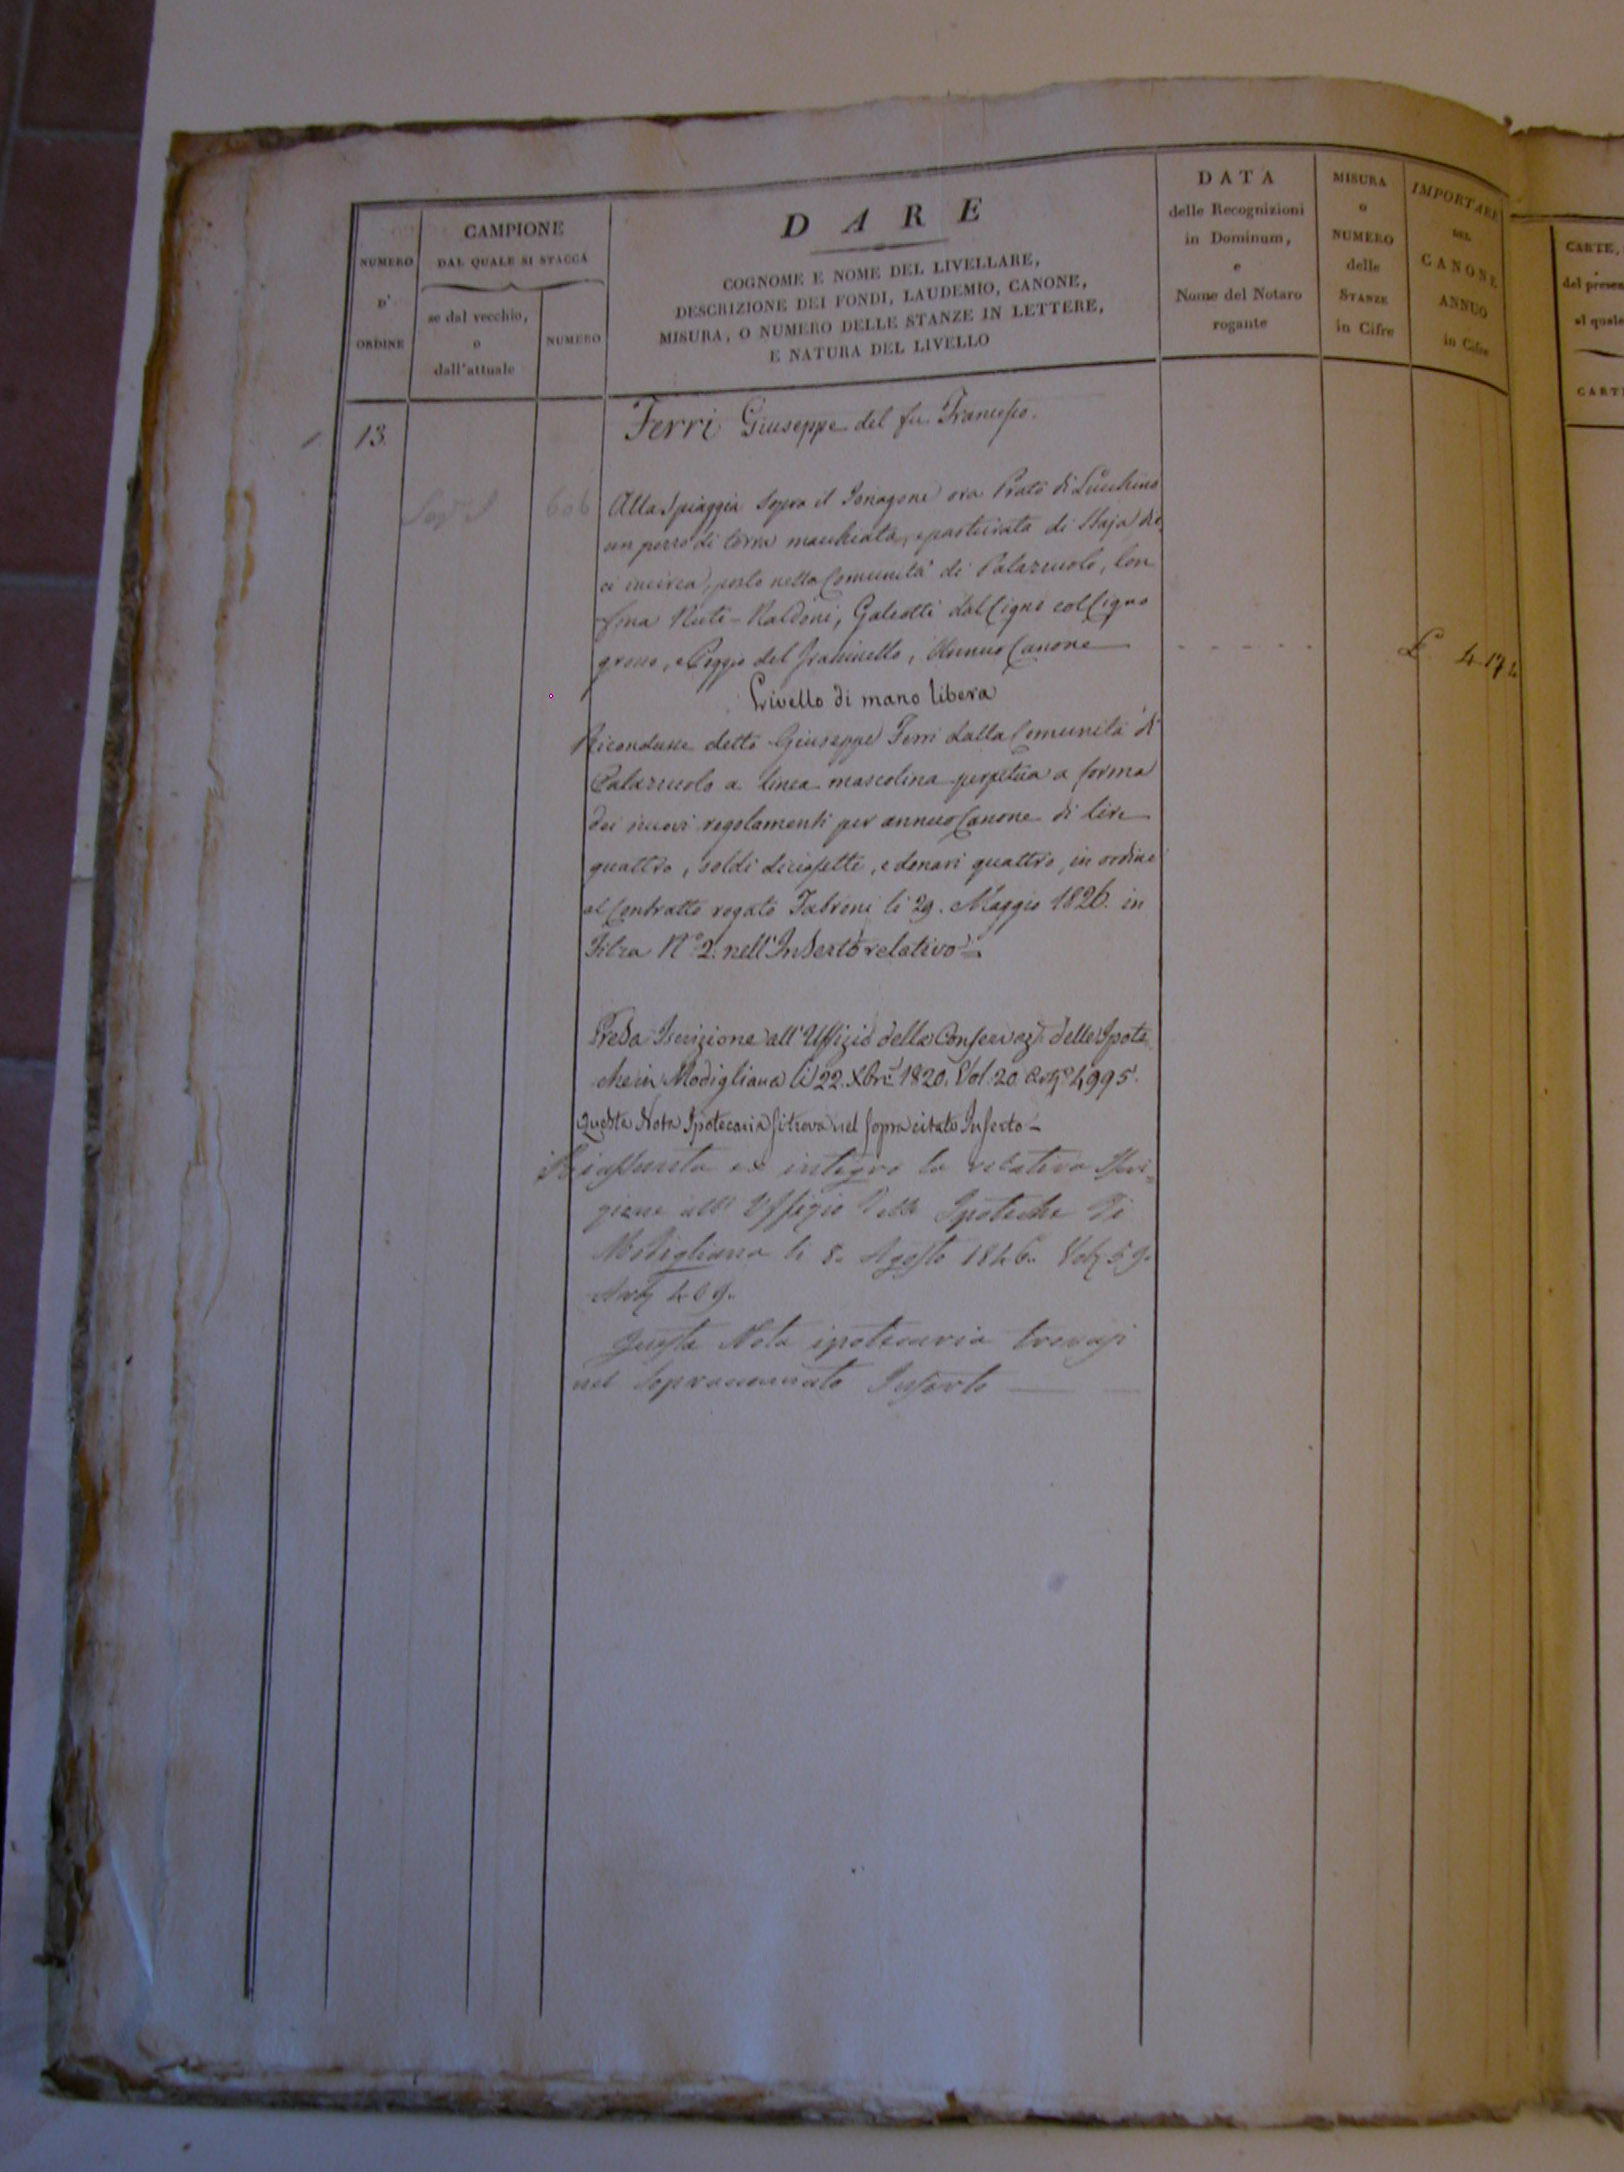 NUMERO
D'
ORDINE
CAMPIONE
DAL QUALE SI STACCA
se dal vecchio,
o
dall'attuale
NUMERO
DARE
COGNOME E NOME DEL LIVELLARE,
DESCRIZIONE DEI FONDI, LAUDEMIO, CANONE,
MISURA, O NUMERO DELLE STANZE IN LETTERE,
E NATURA DEL LIVELLO
DATA
delle Recognizioni
in Dominum,
e
Nome del Notaro
rogante
MISURA
o
NUMERO
delle
STANZE
in Cifre
IMPORTARE
DEL
CANONE
ANNUO
in Cifre
CARTE,
del presen
al quale
CART
13.
Ferri Giuseppe del fu Francesco.
606
Alla Spiaggia sopra il ora Prato di Lucchino
un pezzo di terra macchiata, e pasturata di Staja die
ci incirca, posto nella Comunità di Palazuolo, Con
fina Naldoni, Galeotti dal Cigno col Cigno
grosso, e Poggio del Annuo Canone
£ 4. 17. 4
Livello di mano libera
Ricondusse detto Giuseppe Ferri dalla Comunità di
Palazuolo a linea mascolina perpetua a forma
dei nuovi regolamenti per annuo Canone di lire
quattro, soldi diciasette, e denari quattro, in ordine
al Contratto rogato Fabroni li 29. Maggio 1826. in
Filza N° 2. nell'Inserto relativo =
Presa Iscrizione all'Uffizio della Conservaz.e delle Ipote
che in Modigliana li 22. Xbre 1820. Vol. 20. Art. 4995.
Questa Nota Ipotecaria si trova nel sopra citato Inserto -
Riassunta ex integro la relativa Iscri=
zione all' Uffizio delle Ipoteche di
Modigliana li 8. Agosto 1846. Vol. 59.
Art. 409.
Questa Nota ipotecaria trovasi
nel Soprannominato Inserto